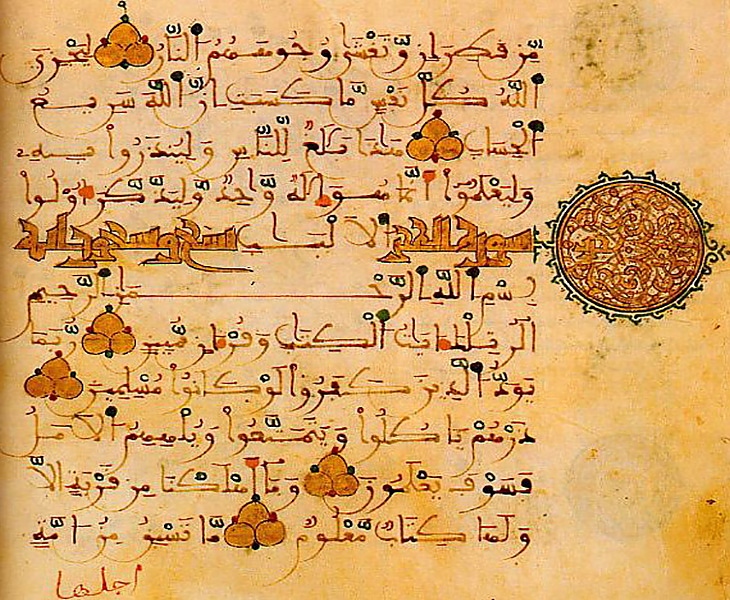 مِّن قَطِرَانٍ وَّتَغْشَىٰ وُجُوهَهُمُ النَّارُ لِيَجْزِيَ
اللَّهُ كُلَّ نَفْسٍ مَّا كَسَبَتِ انَّ اللَّهَ سَرِيعُ
الْحِسَابِ هَٰذَا بَلَٰغٌ لِّلنَّاسِ وَلِيُنذَرُوا بِهِ
وَلِيَعْلَمُوا أَنَّمَا هُوَ إِلَٰهٌ وَّاحِدٌ وَّلِيَذَّكَّرَ أُولُوا
سورة الحجر الَالْبَٰبِ تسع وتسعون اية
بِسْمِ اللَّهِ الرَّحْمَٰنِ الرَّحِيمِ
الٓر تِلْكَ ءَايَٰتُ الْكِتَٰبِ وَقُرْءَانٍ مُّبِينٍ رُّبَمَا
يَوَدُّ الَّذِينَ كَفَرُوا لَوْ كَانُوا مُسْلِمِينَ
ذَرْهُمْ يَاكُلُوا وَيَتَمَتَّعُوا وَيُلْهِهِمُ الَامَلُ
فَسَوْفَ يَعْلَمُونَ وَمَا أَهْلَكْنَا مِن قَرْيَةٍ الَّا
وَلَهَا كِتَابٌ مَّعْلُومٌ مَّا تَسْبِقُ مِنُ امَّةٍ
اجلها